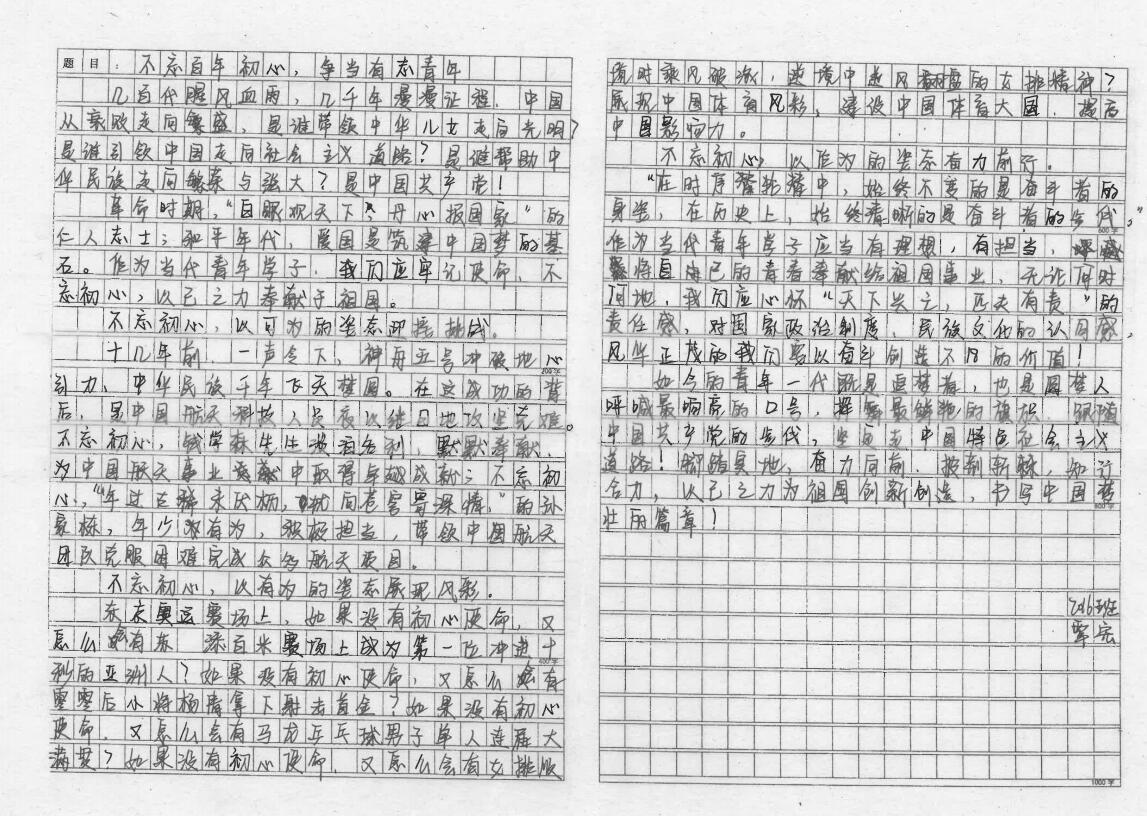 题目：不忘百年初心，争当有志青年
几百代腥风血雨，几千年漫漫征程，中国
从衰败走向繁盛，是谁带领中华儿女走向光明？
是谁引领中国走向社会主义道路？是谁帮助中
华民族走向繁荣与强大？是中国共产党！
革命时期，“自眼观天下，丹心报国家”的
仁人志士；和平年代，爱国是筑建中国梦的基
石。作为当代青年学子，我们应牢记使命，不
忘初心，以己之力奉献于祖国。
不忘初心，以可为的姿态迎接挑战。
十几年前，一声令下，神舟五号冲破地心
引力，中华民族千年飞天梦圆。在这成功的背
后，是中国航天科技人员夜以继日地攻坚克难。
不忘初心，钱学森先生淡泊名利，默默奉献，
为中国航天事业贡献中取得卓越成就；不忘初
心，“年过古稀未伏枥，犹向苍穹寄深情，”的孙
家栋，年少有为，积极担当，带领中国航天
团队克服困难完成众多航天项目。
不忘初心，以有为的姿态展现风彩。
东京奥运赛场上，如果没有初心使命，又
怎么会有苏 添百米赛场上成为第一位冲进十
秒的亚洲人？如果没有初心使命，又怎么会有
零零后小将杨倩拿下射击首金？如果没有初心
使命，又怎么会有马龙乒乓球男子单人连冠大
满贯？如果没有初心使命，又怎么会有女排顺
境时乘风破浪，逆境中逆风翻盘的女排精神？
展现中国体育风彩，建设中国体育大国，提高
中国影响力。
不忘初心，以作为的姿态奋力前行。
“在时序轮替中，始终不变的是奋斗者的
身姿，在历史上，始终清晰的是奋斗者的步伐，”
作为当代青年学子应当有理想，有担当，
将自己的青春奉献给祖国事业，无论何时
何地，我们应心怀“天下兴亡，匹夫有责”的
责任感，对国家政治制度、民族文化的认同感，
风华正茂的我们需以奋斗创造不凡的价值！
如今的青年一代既是追梦者，也是圆梦人
呼喊最响亮的口号，挥 最鲜艳的旗帜，跟随
中国共产党的步伐，坚定走中国特色社会主义
道路！脚踏实地，奋力向前，披荆斩棘，知行
合力，以己之力为祖国创新创造，书写中国梦
壮丽篇章！
2016班
覃宏
200字
400字
600字
800字
1000字